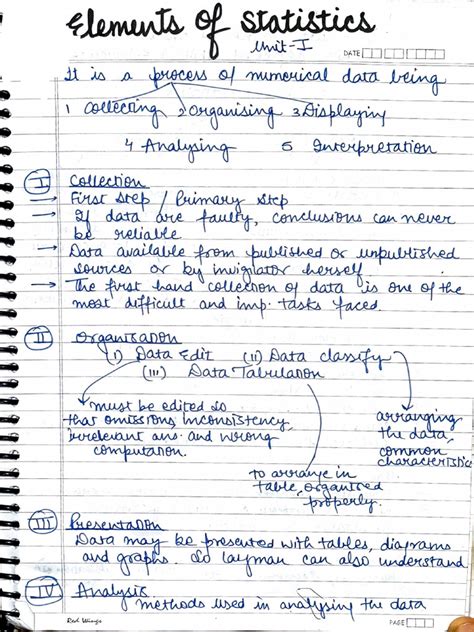 Elements of Statistics
Unit-I
DATE
It is a process of numerical data being
1 Collecting 2 Organising 3 Displaying
4 Analysing 5 Interpretation
I Collection
→ First Step / Primary Step
→ If data are faulty, conclusions can never
be reliable
→ Data available from published or unpublished
sources or by invigilator herself.
→ The first hand collection of data is one of the
most difficult and imp. tasks faced.
II Organisation
(i) Data Edit (ii) Data classify
(iii) Data Tabulation
must be edited so
that omissions, inconsistency,
irrelevant ans. and wrong
computation.
arranging
the data,
common
characteristics
to arrange in
table, organised
properly.
III Presentation
Data may be presented with tables, diagrams
and graphs. So layman can also understand
IV Analysis
methods used in analysing the data
Red Wings
PAGE